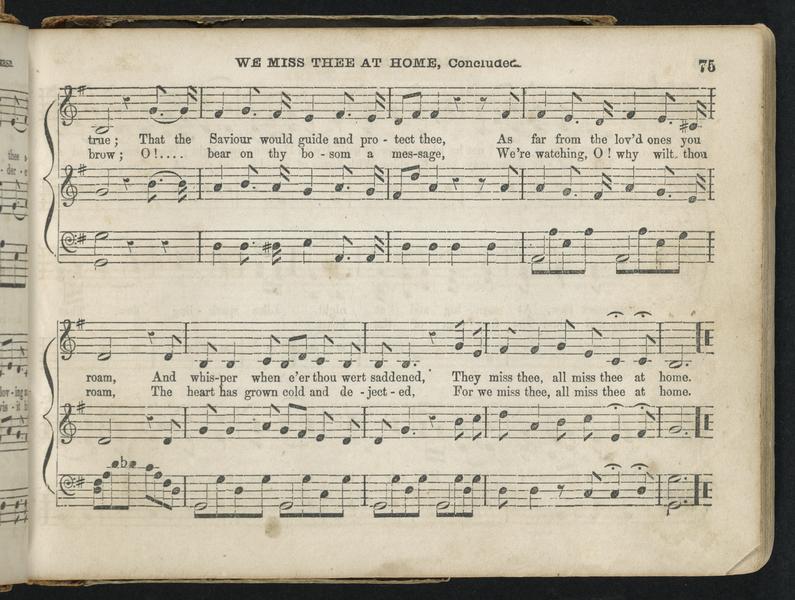 WE MISS THEE AT HOME, Concluded.
75
true; That the Saviour would guide and pro - tect thee, As far from the lov'd ones you
brow; O!.... bear on thy bo - som a mes-sage, We're watching, O! why wilt thou
roam, And whis-per when e'er thou wert saddened, They miss thee, all miss thee at home.
roam, The heart has grown cold and de - ject - ed, For we miss thee, all miss thee at home.